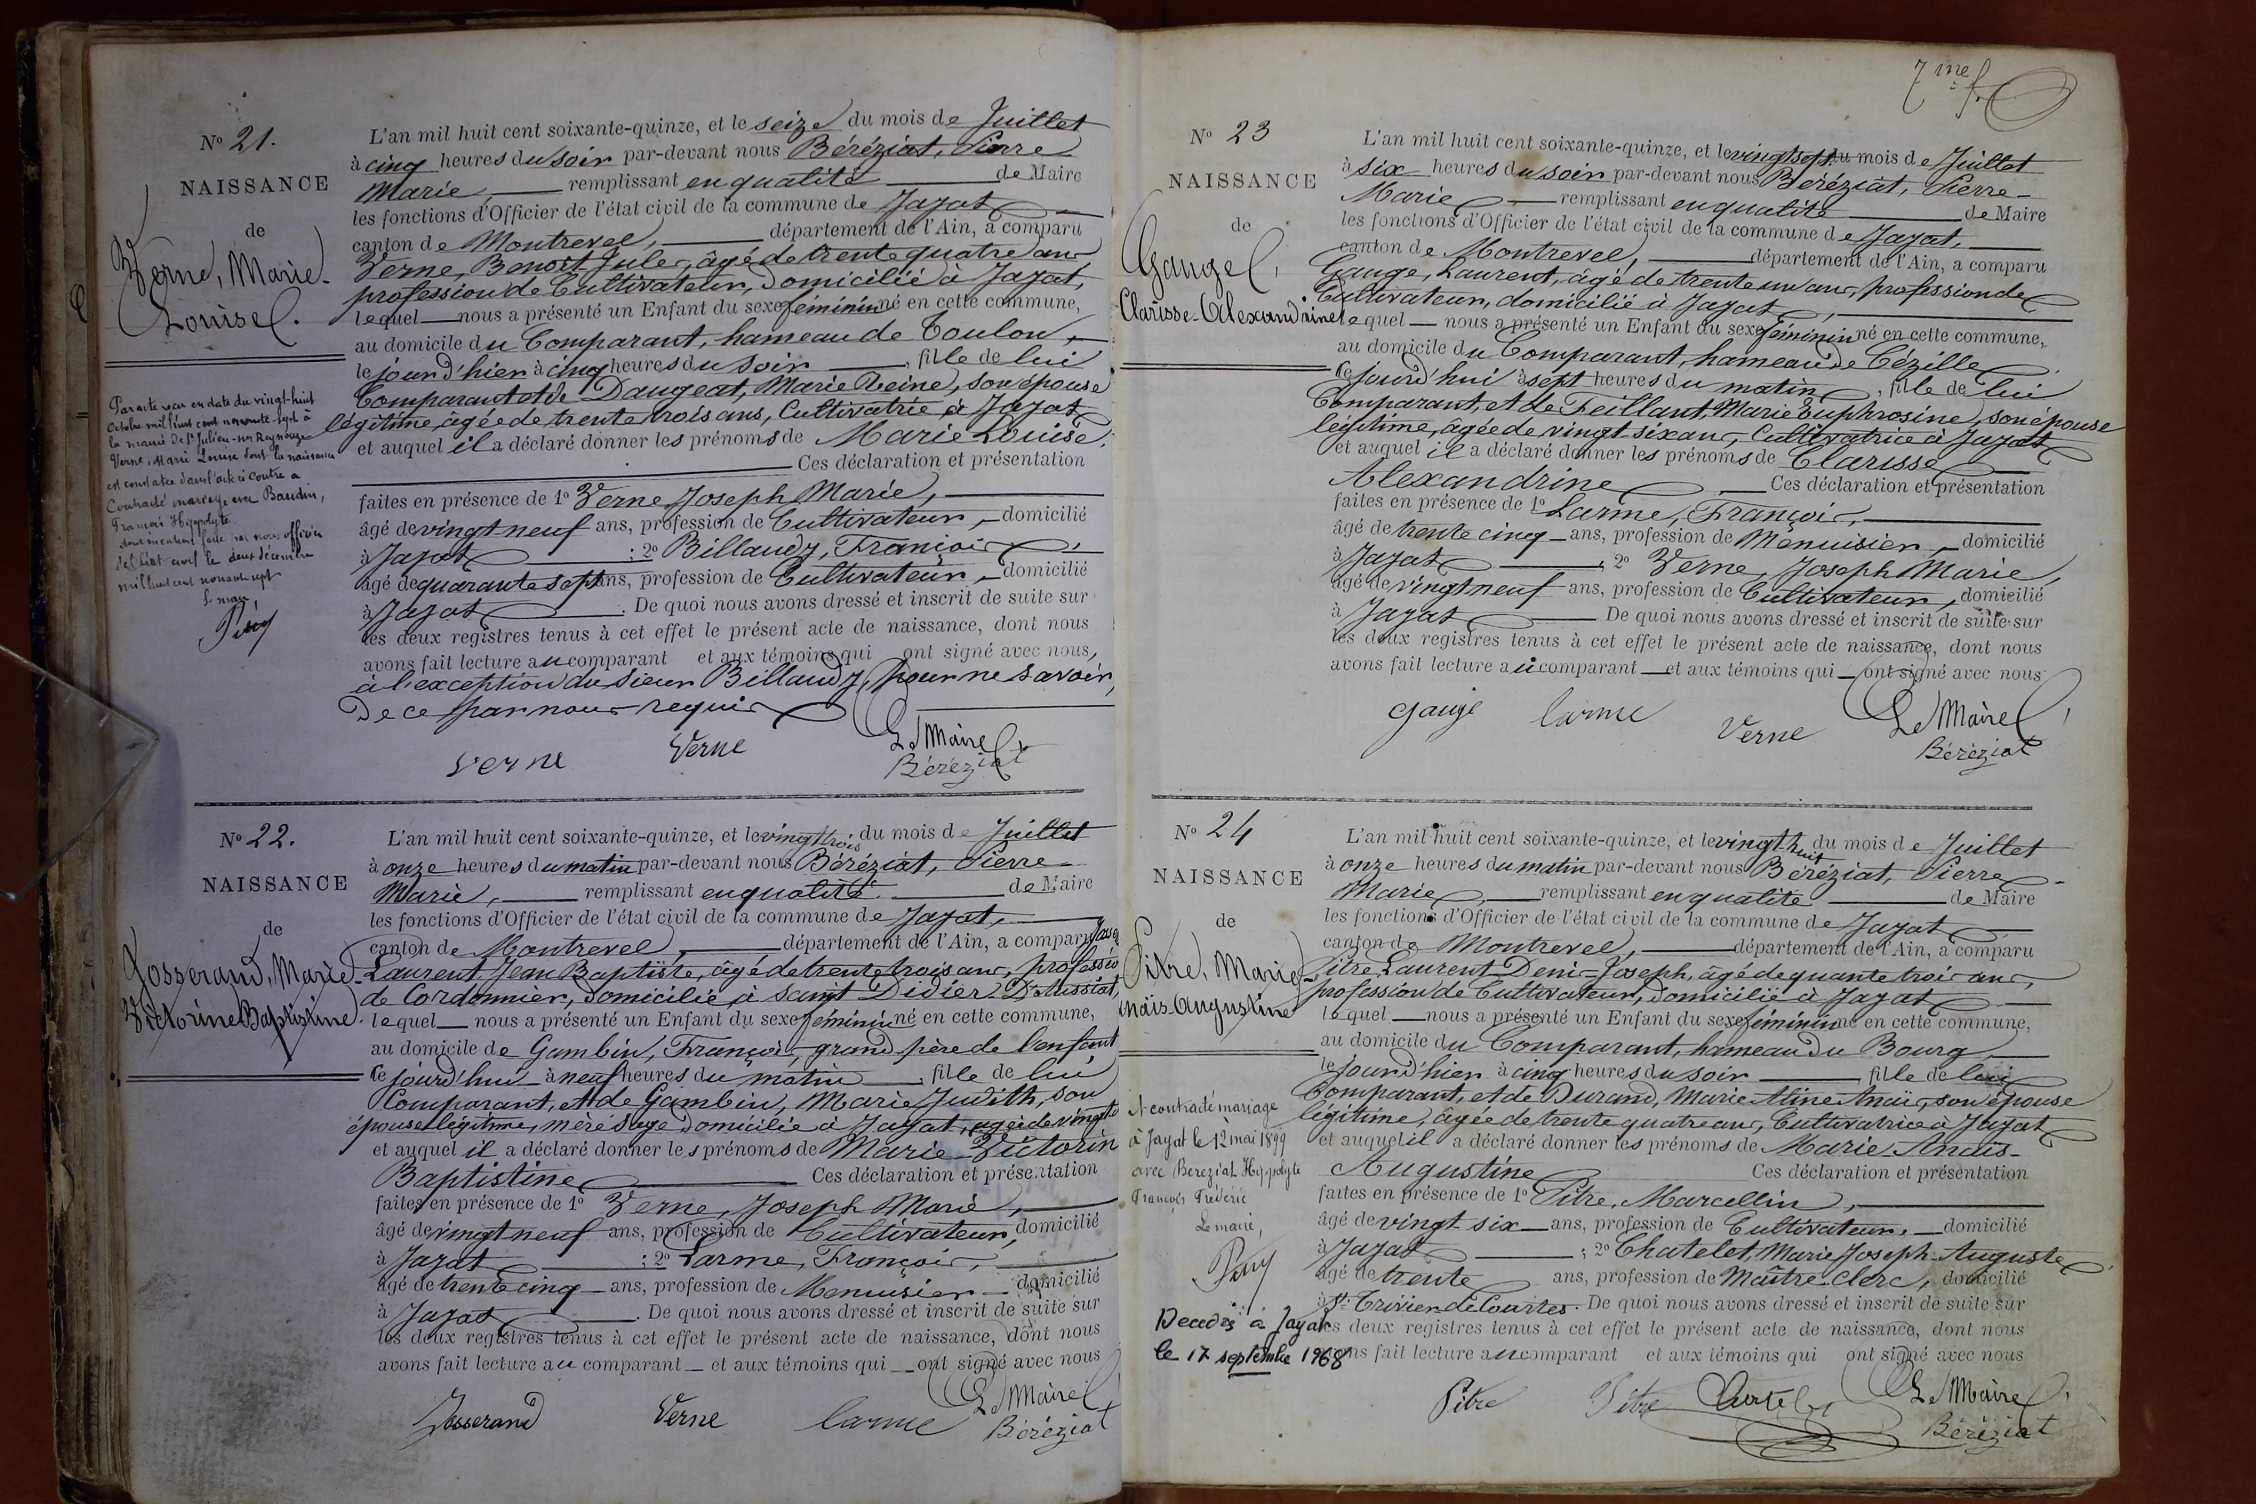 Nº 21.
NAISSANCE
de
Verne, Marie-
Louise.
Par acte reçu en date du vingt-huit
octobre mil huit cent nonante-sept à
la mairie de St Julien-sur-Reyssouze
Verne, Marie Louise dont la naissance
est constatée dans l'acte ci contre a
Contracté mariage avec Baudin,
François Hippolyte.
dont mention faite par nous officier
de l'état civil le deux décembre
mil huit cent nonante sept
Le maire,
L'an mil huit cent soixante-quinze, et le seize du mois de Juillet
à cinq heures du soir par-devant nous Béréziat, Pierre
Marie, remplissant en qualité de Maire
les fonctions d'Officier de l'état civil de la commune de Jayat
canton de Montrevel, département de l'Ain, a comparu
Verne, Benoit Jules, âgé de trente quatre ans
profession de Cultivateur, domicilié à Jayat,
lequel nous a présenté un Enfant du sexe féminin né en cette commune,
au domicile du Comparant, hameau de Toulou,
le jour d'hier à cinq heures du soir, fille de lui
Comparant et de Daugeat, Marie Reine, son épouse
légitime, âgée de trente trois ans, Cultivatrice à Jayat
et auquel il a déclaré donner les prénoms de Marie Louise.
Ces déclaration et présentation
faites en présence de 1º Verne, Joseph Marie,
âgé de vingt neuf ans, profession de Cultivateur, domicilié
à Jayat ; 2º Billaudy, François,
âgé de quarante sept ans, profession de Cultivateur, domicilié
à Jayat. De quoi nous avons dressé et inscrit de suite sur
les deux registres tenus à cet effet le présent acte de naissance, dont nous
avons fait lecture au comparant et aux témoins qui ont signé avec nous,
à l'exception du sieur Billaudy, pour ne savoir,
de ce par nous requis
Verne Verne Le Maire
Béréziat
Nº 22.
NAISSANCE
de
Josserand, Marie-
Victorine Baptistine.
L'an mil huit cent soixante-quinze, et le vingt trois du mois de Juillet
à onze heures du matin par-devant nous Béréziat, Pierre
Marie, remplissant en qualité de Maire
les fonctions d'Officier de l'état civil de la commune de Jayat,
canton de Montrevel, département de l'Ain, a comparu
Laurent Jean Baptiste, âgé de trente trois ans, professio
de Cordonnier, domicilié à saint Didier D'Aussiat,
lequel nous a présenté un Enfant du sexe féminin né en cette commune,
au domicile de Gambin, François, grand père de l'enfant
ce jourd'hui à neuf heures du matin, fille de lui
Comparant, et de Gambin, Marie Judith, son
épouse légitime, mère sage domicilié à Jayat, agée de vingt
et auquel il a déclaré donner les prénoms de Marie Victorin
Baptistine Ces déclaration et présentation
faites en présence de 1º Verne, Joseph Marie,
âgé de vingt neuf ans, profession de Cultivateur, domicilié
à Jayat ; 2º Larme, François,
âgé de trente cinq ans, profession de Menuisier domicilié
à Jayat. De quoi nous avons dressé et inscrit de suite sur
les deux registres tenus à cet effet le présent acte de naissance, dont nous
avons fait lecture au comparant et aux témoins qui ont signé avec nous
Josserand Verne larme Le Maire
Béréziat
7me f.
Nº 23
NAISSANCE
de
Gauge,
Clarisse-Alexandrine
L'an mil huit cent soixante-quinze, et le vingt sept du mois de Juillet
à six heures du soir par-devant nous Béréziat, Pierre-
Marie remplissant en qualité de Maire
les fonctions d'Officier de l'état civil de la commune de Jayat,
canton de Montrevel, département de l'Ain, a comparu
Gauge, Laurent, âgé de trente un ans, profession de
Cultivateur, domicilié à Jayat,
lequel nous a présenté un Enfant du sexe féminin né en cette commune,
au domicile du Comparant, hameau de Cézille
ce jourd'hui à sept heures du matin, fille de lui
Comparant, et de Feillant, Marie Euphrosine, son épouse
légitime, âgée de vingt six ans, Cultivatrice à Jayat
et auquel il a déclaré donner les prénoms de Clarisse
Alexandrine Ces déclaration et présentation
faites en présence de 1º Larme, François,
âgé de trente cinq ans, profession de Menuisier, domicilié
à Jayat ; 2º Verne, Joseph Marie,
âgé de vingt neuf ans, profession de Cultivateur, domicilié
à Jayat De quoi nous avons dressé et inscrit de suite sur
les deux registres tenus à cet effet le présent acte de naissance, dont nous
avons fait lecture au comparant et aux témoins qui ont signé avec nous
gauge larme Verne Le Maire
Béréziat
Nº 24
NAISSANCE
de
Pitre, Marie-
naïs-Augustine
A contracté mariage
à Jayat le 12 mai 1899
avec Bereziat Hippolyte
François Frédéric
Le maire,
Decedée à Jayat
le 17 septembre 1968
L'an mil huit cent soixante-quinze, et le vingt huit du mois de Juillet
à onze heures du matin par-devant nous Béréziat, Pierre-
Marie, remplissant en qualité de Maire
les fonctions d'Officier de l'état civil de la commune de Jayat
canton de Montrevel, département de l'Ain, a comparu
Pitre, Laurent Denis-Joseph, âgé de quante trois ans,
profession de Cultivateur, domicilié à Jayat
lequel nous a présenté un Enfant du sexe féminin né en cette commune,
au domicile du Comparant, hameau du Bourg
le jour d'hier à cinq heures du soir, fille de lui
Comparant, et de Durand, Marie Aline Anaïs, son épouse
légitime, âgée de trente quatre ans, Cultivatrice à Jayat
et auquel il a déclaré donner les prénoms de Marie, Anaïs-
Augustine Ces déclaration et présentation
faites en présence de 1º Pitre, Marcellin,
âgé de vingt six ans, profession de Cultivateur, domicilié
à Jayat ; 2º Chatelet, Marie Joseph-Auguste,
âgé de trente ans, profession de Maître-Clerc, domicilié
à St. Trivier de Courtes. De quoi nous avons dressé et inscrit de suite sur
les deux registres tenus à cet effet le présent acte de naissance, dont nous
avons fait lecture au comparant et aux témoins qui ont signé avec nous
Pitre Pitre Le Maire
Béréziat